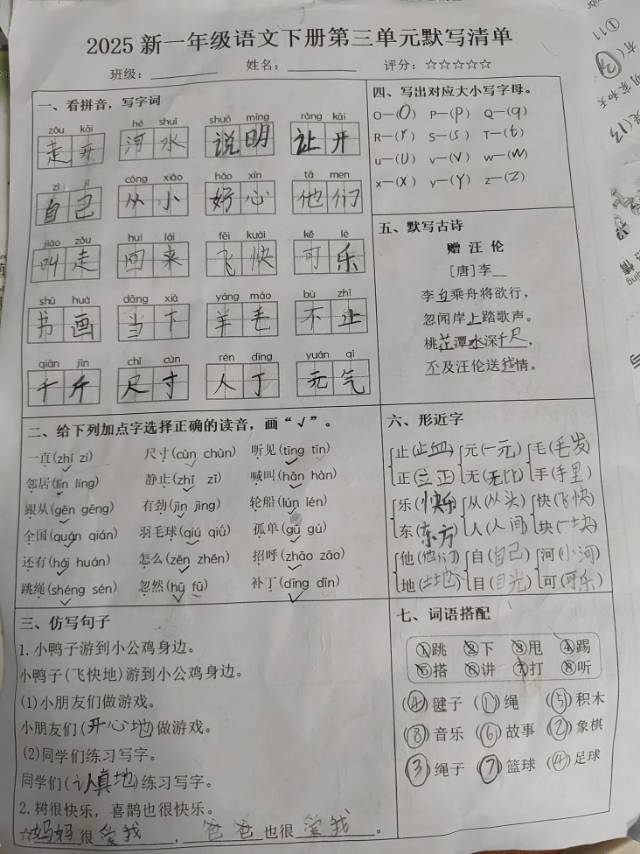 2025 新一年级语文下册第三单元默写清单
班级： 姓名： 评分：☆☆☆☆☆
一、看拼音，写字词
zǒu kāi hé shuǐ shuō míng ràng kāi
走开 河水 说明 让开
zì jǐ cóng xiǎo hǎo xīn tā men
自己 从小 好心 他们
jiào zǒu huí lái fēi kuài kě lè
叫走 回来 飞快 可乐
shū huà dāng xià yáng máo bù zhǐ
书画 当下 羊毛 不止
qiān jīn chǐ cùn rén dīng yuán qì
千斤 尺寸 人丁 元气
二、给下列加点字选择正确的读音，画“√”。
一直(zhí zí) 尺寸(cùn chùn) 听见(tīng tīn)
邻居(lín líng) 静止(zhǐ zǐ) 喊叫(hǎn hàn)
跟从(gēn gēng) 有劲(jìn jìng) 轮船(lún lén)
全国(quán qián) 羽毛球(qiú qiū) 孤单(gū gú)
还有(hái huán) 怎么(zěn zhěn) 招呼(zhāo záo)
跳绳(shéng sén) 忽然(hū fū) 补丁(dīng dīn)
三、仿写句子
1.小鸭子游到小公鸡身边。
小鸭子(飞快地)游到小公鸡身边。
(1)小朋友们做游戏。
小朋友们(开心地)做游戏。
(2)同学们练习写字。
同学们(认真地)练习写字。
2.树很快乐，喜鹊也很快乐。
☆妈妈很爱我，爸爸也很爱我。
四、写出对应大小写字母。
O—(O) P—(p) Q—(q)
R—(r) S—(s) T—(t)
u—(U) v—(V) w—(W)
x—(X) y—(Y) z—(Z)
五、默写古诗
赠 汪 伦
[唐]李
李白乘舟将欲行，
忽闻岸上踏歌声。
桃花潭水深千尺，
不及汪伦送我情。
六、形近字
止(止血) 元(一元) 毛(毛发)
正(立正) 无(无比) 手(手里)
乐(快乐) 从(从头) 快(飞快)
东(东方) 人(人间) 块(一块)
他(他们) 自(自己) 河(小河)
地(土地) 目(目光) 可(可乐)
七、词语搭配
①跳 ②下 ③甩 ④踢
⑤搭 ⑥讲 ⑦打 ⑧听
(④)毽子 (①)绳 (⑤)积木
(⑧)音乐 (⑥)故事 (②)象棋
(③)绳子 (⑦)篮球 (④)足球